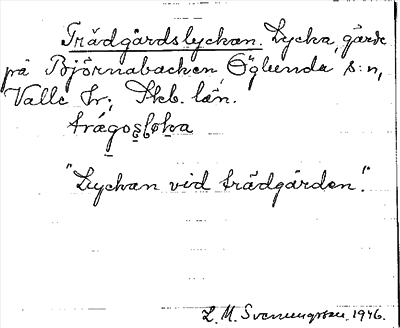 Trädgårdslyckan. Lycka, gärde
på Björnabacken, Öglunda s:n,
Valle hr, Skb. län.
"Lyckan vid trädgården."
L. M. Svenungsson, 1946.